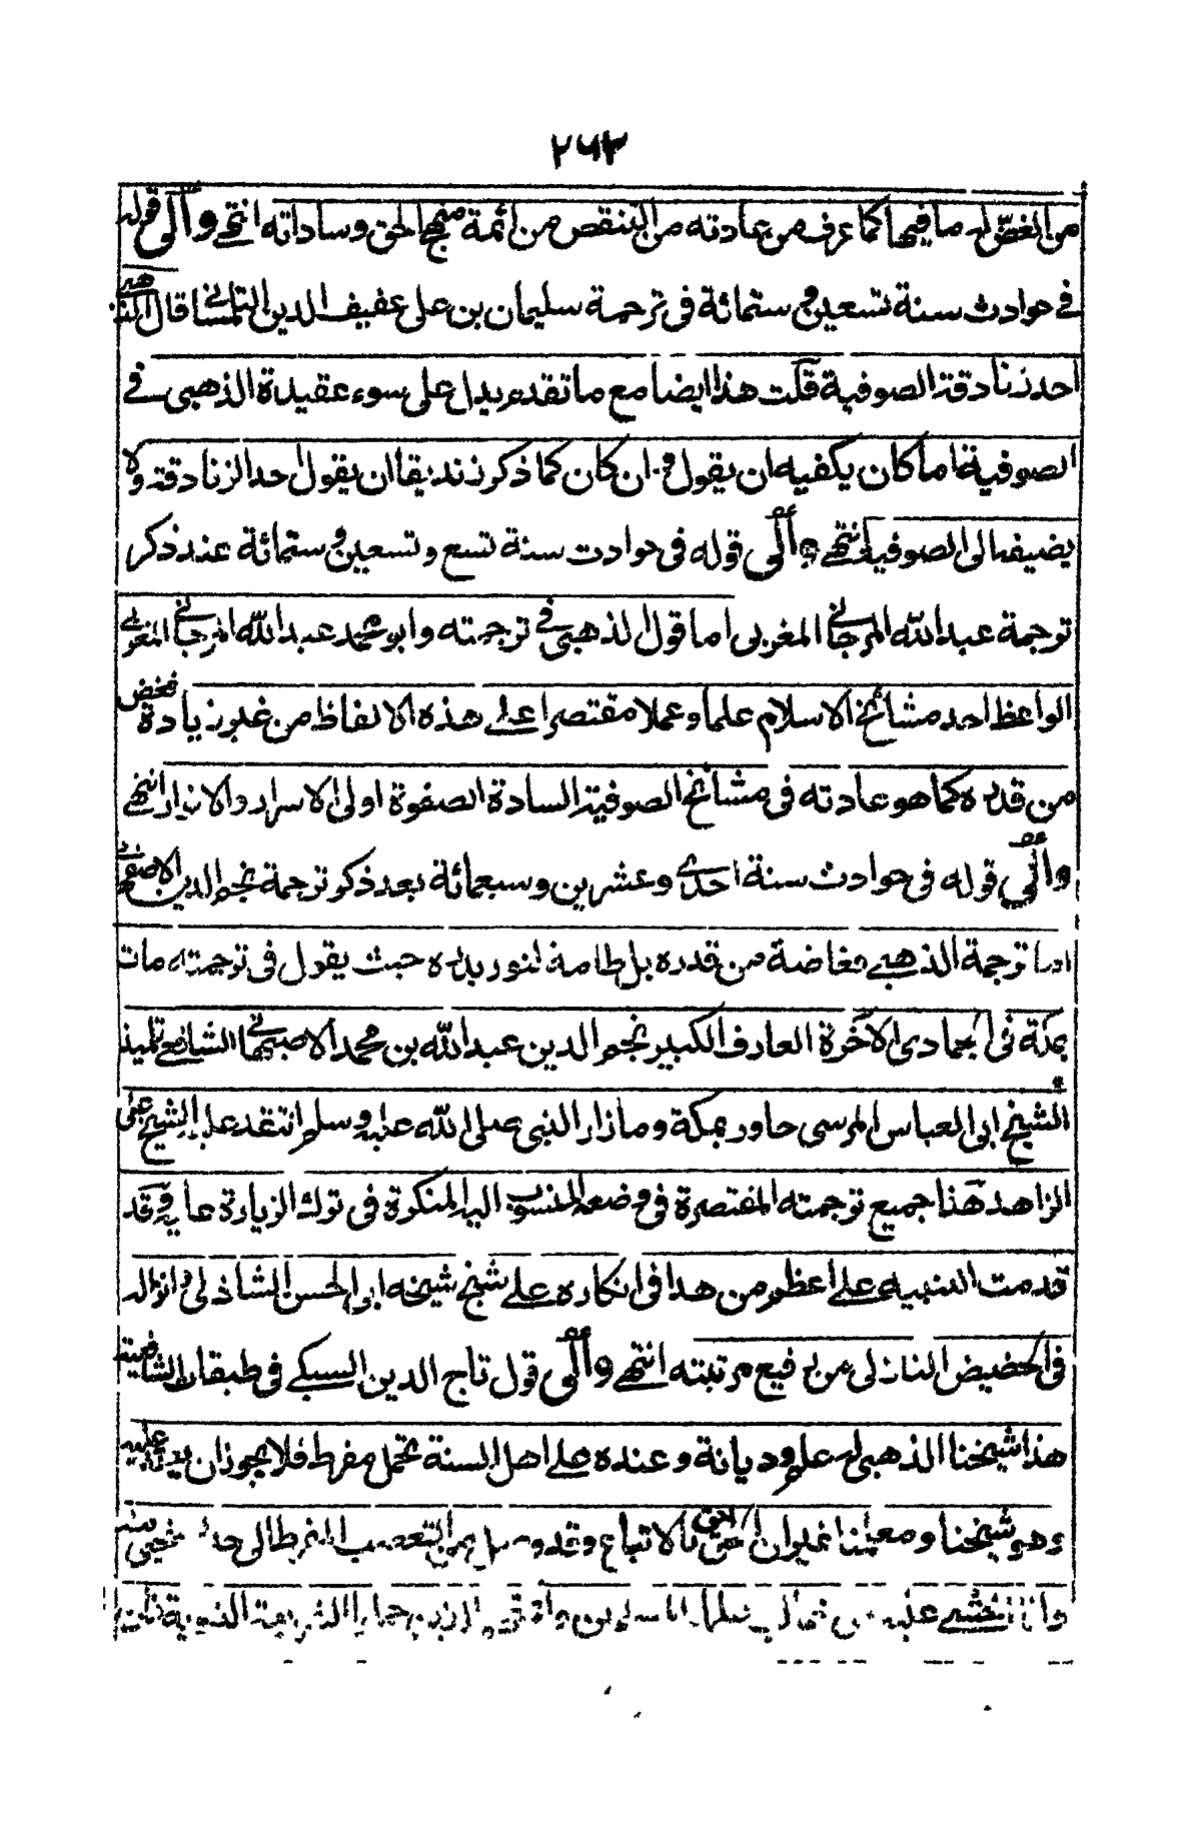 ٢٦٣
من الغض له ما فيها كما عرف من عادته من التنقص من ائمة منهج الحق وساداته انتهى والى قوله
في حوادث سنة تسعين و ستمائة فى ترجمة سليمان بن على عفيف الدين التلمسانى قال الذهبى
احد زنادقة الصوفية قلت هذا ايضا مع ما تقدم يدل على سوء عقيدة الذهبى في
الصوفية اما كان يكفيه ان يقول ان كان كما ذكر زنديقا ان يقول احد الزنادقة ولا
يضيف الى الصوفية انتهى والى قوله فى حوادث سنة تسع وتسعين و ستمائة عند ذكر
ترجمة عبد الله المرجانى المغربى اما قول الذهبى فى ترجمته وابو محمد عبد الله المرجانى المغربى
الواعظ احد مشائخ الاسلام علما وعملا مقتصرا على هذه الالفاظ من غير زيادة فغض
من قدره كما هو عادته فى مشائخ الصوفية السادة الصفوة اولى الاسرار والانوار انتهى
والى قوله فى حوادث سنة احدى وعشرين وسبعمائة بعد ذكر ترجمة نجم الدين الاصفهانى
اما ترجمة الذهبى فغاضة من قدره بل طامة لنور بدره حيث يقول فى ترجمته مات
بمكة فى الجمادى الآخرة العارف الكبير نجم الدين عبد الله بن محمد الاصبهانى الشافعى تلميذ
الشيخ ابى العباس المرسى جاور بمكة وما زار النبى صلى الله عليه وسلم انتقد عليه الشيخ على
الزاهد هذا جميع ترجمته المقتصرة فى وضعه المنسوب اليه المنكرة فى ترك الزيارة عليه وقد
قدمت التنبيه على اعظم من هذا فى انكاره على شيخ شيخه ابى الحسن الشاذلى وانزاله
فى الحضيض النازلى من رفيع مرتبته انتهى والى قول تاج الدين السبكى فى طبقات الشافعية
هذا شيخنا الذهبى له علم وديانة وعنده على اهل السنة تحمل مفرط فلا يجوز ان يعتمد عليه
وهو شيخنا ومعلمنا غير ان الحق احق بالاتباع وقد وصل من التعصب المفرط الى حد يستحيى منه
وانا اخشى عليه من غالب علماء المسلمين الذين حملوا الشريعة النبوية فان